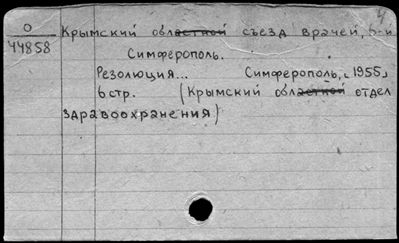 4
О
44858
Крымский областной съезд врачей, 6-й
Симферополь.
Резолюция... Симферополь, [1955]
6 стр. (Крымский областной отдел
здравоохранения)